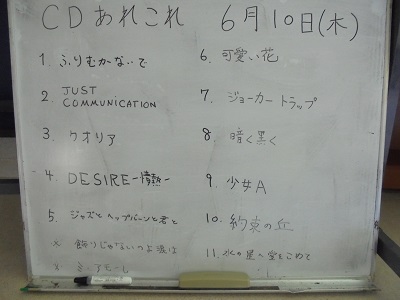 CDあれこれ 6月10日(木)
1. ふりむかないで
2. JUST
COMMUNICATION
3. クオリア
4. DESIRE-情熱-
5. ジャズとヘップバーンと君と
※ 飾りじゃないのよ涙は
※ ミ・アモーレ
6. 可愛い花
7. ジョーカートラップ
8. 暗く黒く
9. 少女A
10. 約束の丘
11. 水の星へ愛をこめて